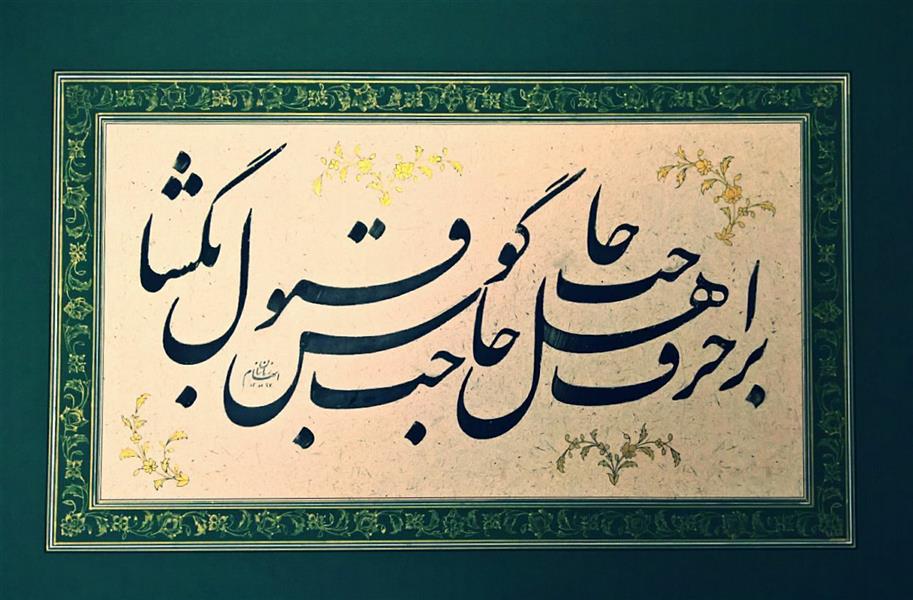 بر حرف اهل حاجت حاجت گوش قبول بگشا